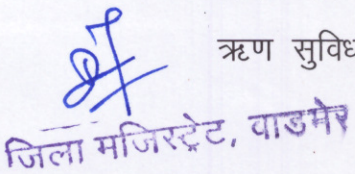 ऋण सुविध
जिला मजिस्ट्रेट, वाडमेर